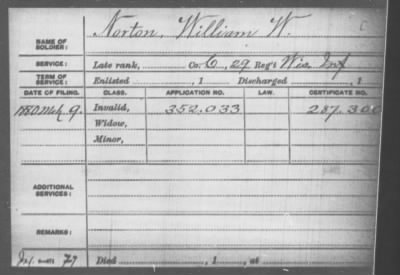 Norton, William W.
NAME OF SOLDIER:
SERVICE: Late rank, Co. C, 29 Reg't Wis. Inf
TERM OF SERVICE: Enlisted , 1 Discharged , 1
DATE OF FILING. CLASS. APPLICATION NO. LAW. CERTIFICATE NO.
1880 Mch. 9. Invalid, 352.033 287.300
Widow,
Minor,
ADDITIONAL SERVICES:
REMARKS:
Died , 1 , at